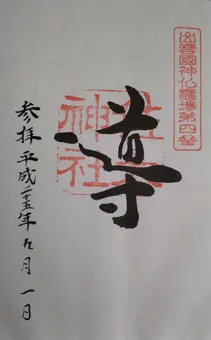 出雲國神仏霊場第四番
佐太
神社
導
参拝平成二十五年九月一日